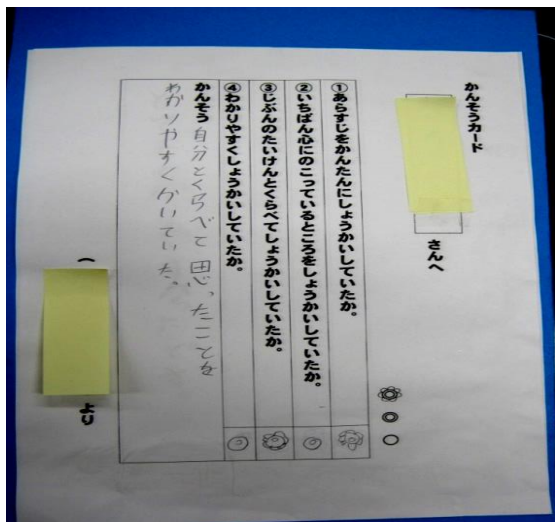 かんそうカード
さんへ
①あらすじをかんたんにしょうかいしていたか。
②いちばん心にのこっているところをしょうかいしていたか。
③じぶんのたいけんとくらべてしょうかいしていたか。
④わかりやすくしょうかいしていたか。
かんそう 自分とくらべて思ったことを
わかりやすくかいていた。
( より